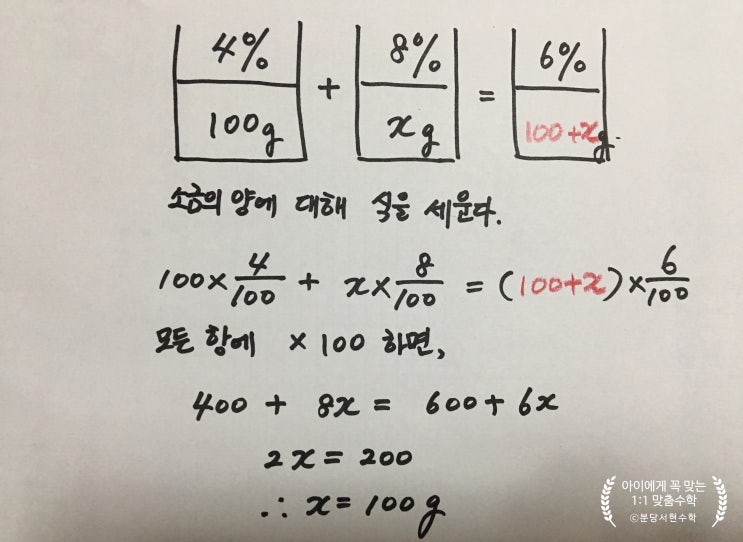 4% 8% 6%
100g + xg = 100+xg.
소금의 양에 대해 식을 세운다.
100×4/100 + x×8/100 = (100+x)×6/100
모든 항에 ×100 하면,
400 + 8x = 600+6x
2x = 200
∴ x = 100g
아이에게 꼭 맞는
1:1 맞춤수학
ⓒ분당서현수학